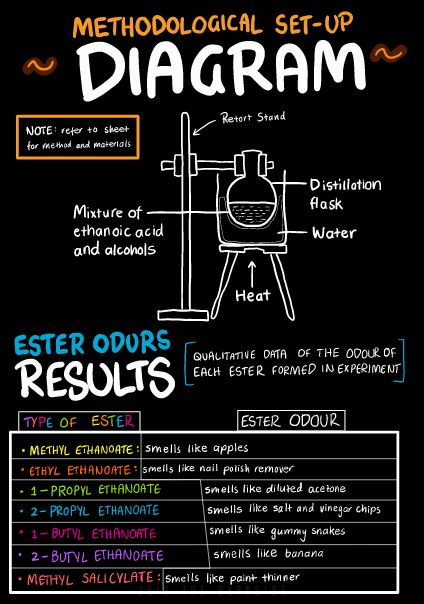 METHODOLOGICAL SET-UP
DIAGRAM
NOTE: refer to sheet
for method and materials
Retort Stand
Distillation
flask
Mixture of
ethanoic acid
and alcohols
Water
Heat
ESTER ODURS
RESULTS
[QUALITATIVE DATA OF THE ODOUR OF
EACH ESTER FORMED IN EXPERIMENT]
TYPE OF ESTER
ESTER ODOUR
• METHYL ETHANOATE: smells like apples
• ETHYL ETHANOATE: smells like nail polish remover
• 1-PROPYL ETHANOATE smells like diluted acetone
• 2-PROPYL ETHANOATE smells like salt and vinegar chips
• 1-BUTYL ETHANOATE smells like gummy snakes
• 2-BUTYL ETHANOATE smells like banana
• METHYL SALICYLATE: smells like paint thinner